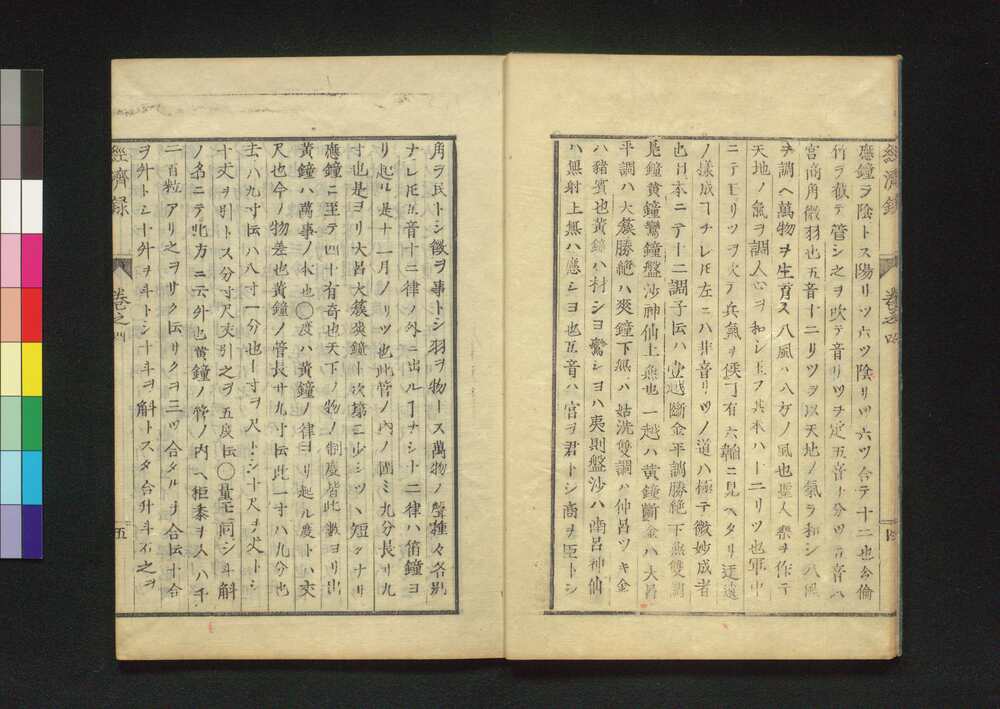 應鐘ヲ陰トス陽リツ六ツ陰リツ六ツ合テ十二也伶倫
竹ヲ截テ管シ之ヲ吹テ音リツヲ定五音ト分ツ五音ハ
宮商角徴羽也五音十二リツヲ以天地ノ氣ヲ和シ八風
ヲ調ヘ萬物ヲ生育ス八風ハ八方ノ風也聖人樂ヲ作テ
天地ノ氣ヲ調人心ヲ和シ玉フ其本ハ十二リツ也軍中
ニテモリツヲ吹テ兵氣ヲ候フ有六韜ニ見ヘタリ迂遠
ノ樣成ヿナレ𪜈左ニハ非音リツノ道ハ極テ微妙成者
也日本ニテ十二調子伝ハ壹越斷金平調勝絶下無雙調
鳬鐘黄鐘鸞鐘盤沙神仙上無也一越ハ黄鐘斷金ハ大呂
平調ハ大簇勝絶ハ夾鐘下無ハ姑洗雙調ハ仲呂ツキ金
ハ㽔賓也黄鐘ハ林シヨ鸞シヨハ夷則盤沙ハ南呂神仙
ハ無射上無ハ應シヨ也五音ハ宮ヲ君トシ商ヲ臣トシ
經濟録 卷之四 四
角ヲ民トシ徴ヲ事トシ羽ヲ物トス萬物ノ聲種々各別
ナレ𪜈五音十二律ノ外ニ出ルヿナシ十二律ハ黄鐘ヨ
リ起ル是十一月ノリツ也此管ノ内ノ圍ミ九分長リ九
寸也是ヨリ大呂大簇夾鐘ト次第ニ少シツヽ短クナリ
應鐘ニ至テ四寸有奇也天下ノ物ノ制度皆此數ヨリ出
黄鐘ハ萬事ノ本也〇度ハ黄鐘ノ律ヨリ起ル度トハ丈
尺也今ノ物差也黄鐘ノ管長サ九寸伝此一寸ハ九分也
去ハ九寸伝ハ八寸一分也十寸ヲ尺トシ十尺ヲ丈トシ
十丈ヲ引トス分寸尺丈引之ヲ五度伝〇量モ同シ斗斛
ノ名ニテ北方ニ云外也黄鐘ノ管ノ内ヘ秬黍ヲ入ハ千
二百粒アリ之ヲサク伝リクヲ二ツ合タルヲ合伝十合
ヲ升トシ十升ヲ斗トシ十斗ヲ斛トスタ合升斗石之ヲ
經濟録 卷之四 五